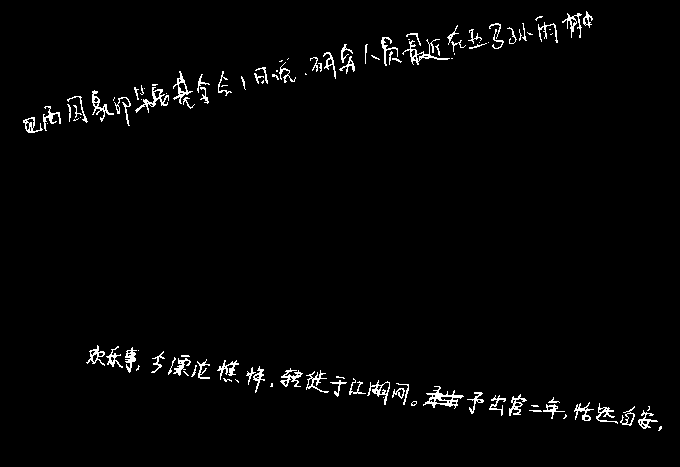 巴西国家印第安人基金会1日说，研究人员最近在亚马孙雨林中
欢乐事，今漂沦憔悴，转徙于江湖间。予出官二年，恬然自安，